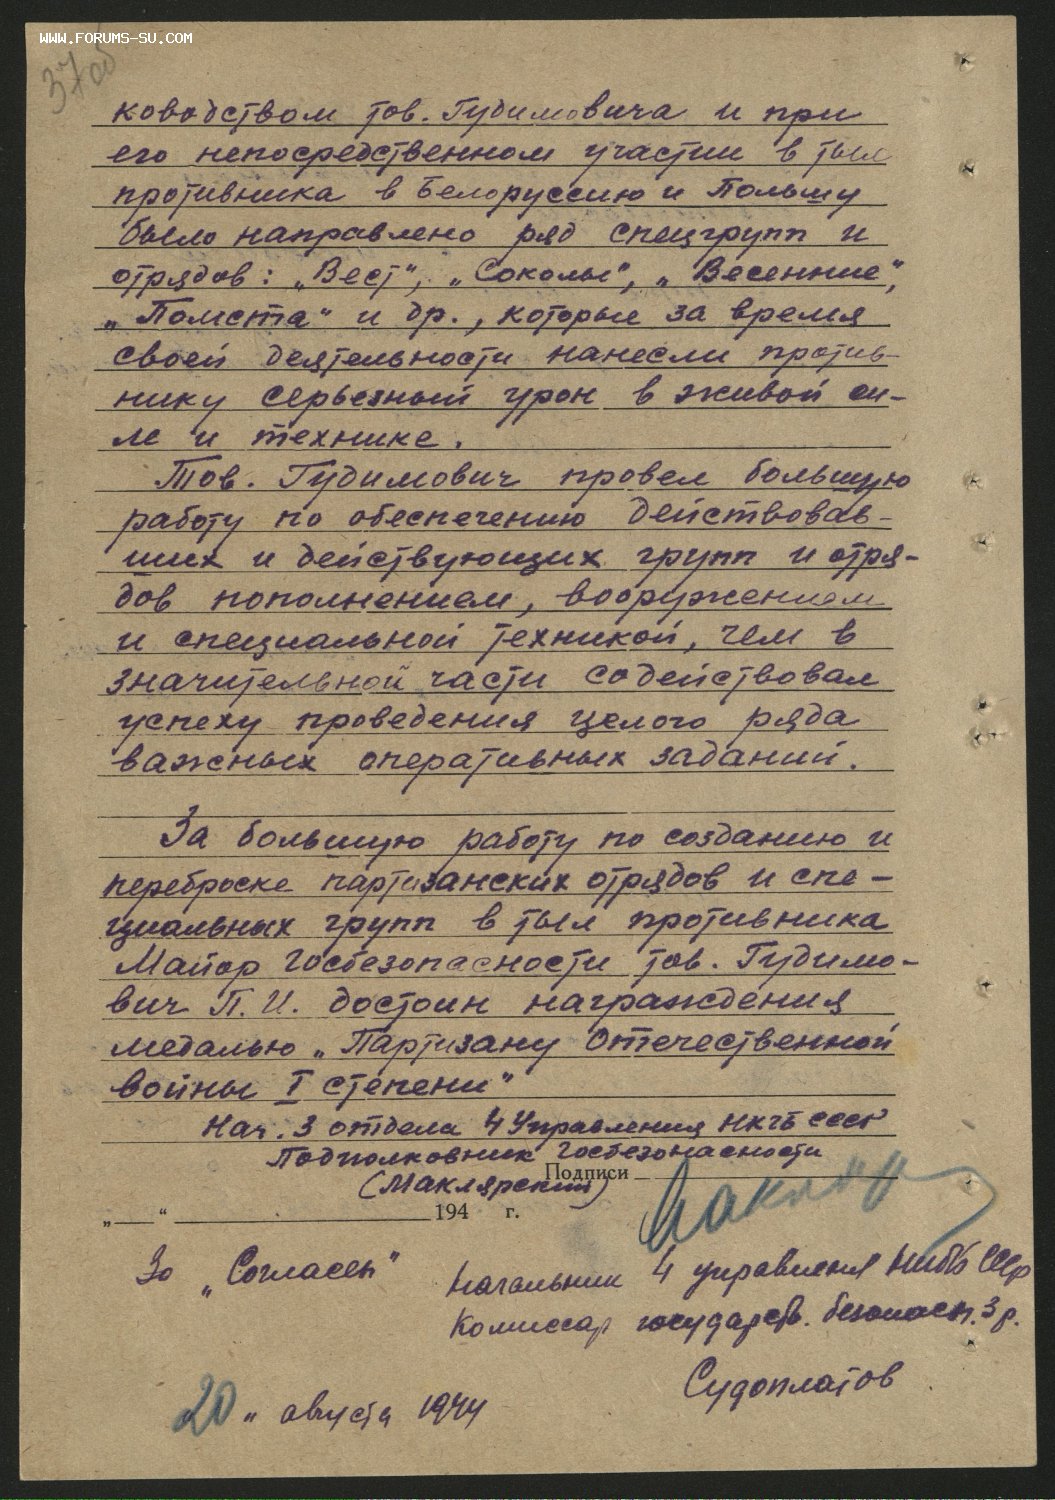 WWW.FORUMS-SU.COM
37об
ководством тов. Гудимовича и при
его непосредственном участии в тыл
противника в Белоруссию и Польшу
было направлено ряд спецгрупп и
отрядов: „Вест", „Соколы", „Весенние",
„Помста" и др., которые за время
своей деятельности нанесли против-
нику серьезный урон в живой си-
ле и технике.
Тов. Гудимович провел большую
работу по обеспечению действовав-
ших и действующих групп и отря-
дов пополнением, вооружением
и специальной техникой, чем в
значительной части содействовал
успеху проведения целого ряда
важных оперативных заданий.
За большую работу по созданию и
переброске партизанских отрядов и спе-
циальных групп в тыл противника
Майор Госбезопасности тов. Гудимо-
вич П. И. достоин награждения
медалью „Партизану Отечественной
войны I степени"
Нач. 3 отдела 4 Управления НКГБ СССР
Подполковник Госбезопасности
Подписи
(Маклярский)
„ “ 194 г.
„Согласен" Начальник 4 управления НКГБ СССР
Комиссар государств. безопасн. 3 р.
Судоплатов
20 " августа 1944